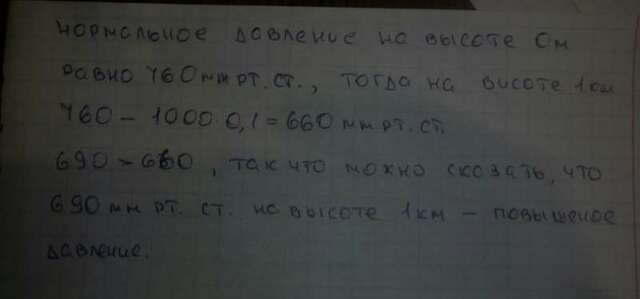 нормальное давление на высоте 0м
равно 760 мм рт. ст., тогда на висоте 1км
760 - 1000·0,1 = 660 мм рт. ст.
690 > 660, так что можно сказать, что
690 мм рт. ст. на высоте 1км - повышеное
давление.